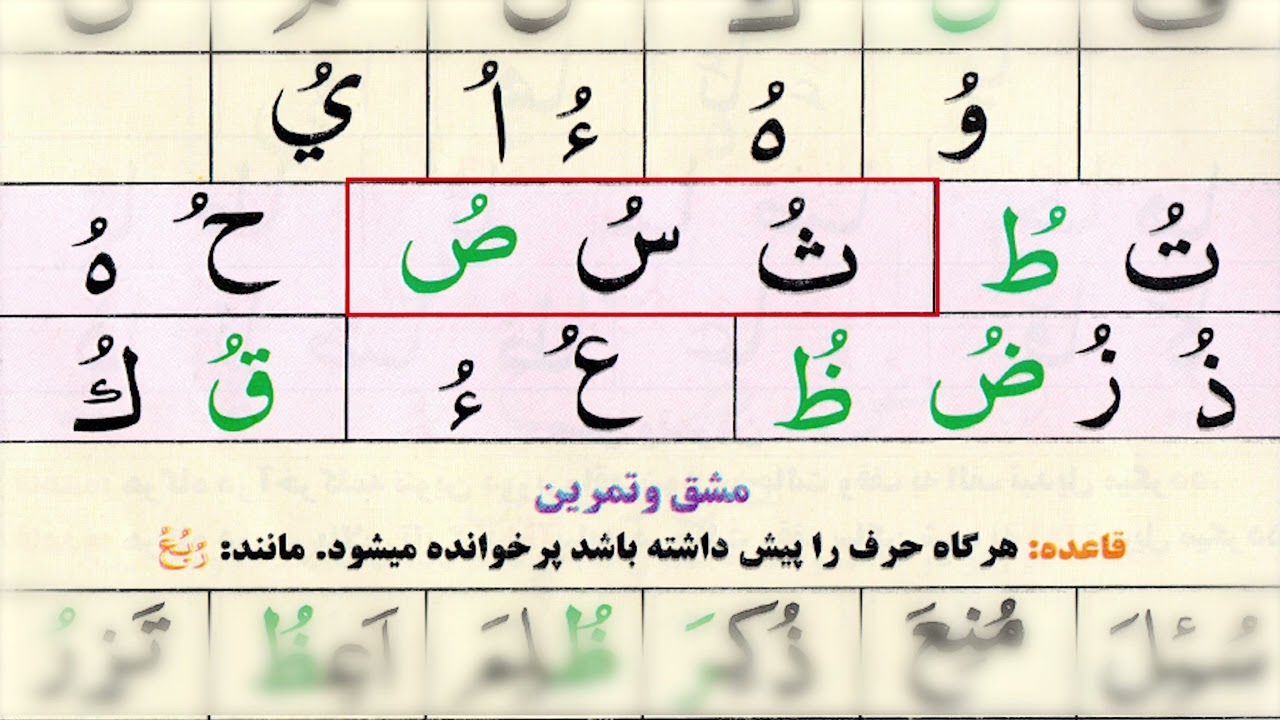 وُ هُ ءُ اُ يُ
تُ طُ ثُ سُ صُ حُ هُ
ذُ زُ ضُ ظُ عُ ءُ قُ كُ
مشق وتمرین
قاعده: هرگاه حرف را پیش داشته باشد پر خوانده میشود. مانند: رُبُعُ
سُئِلَ مُنِعَ ذُكِرَ ظُلِمَ اَعِظُ تَزِرُ